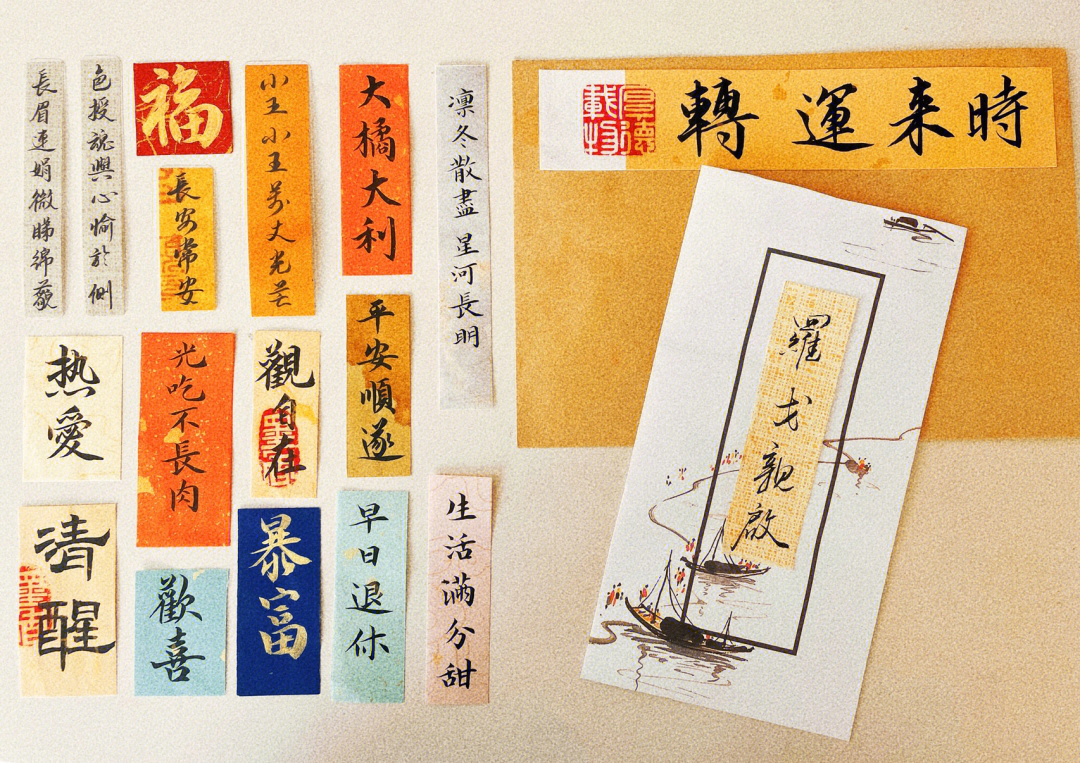 長眉連娟微睇綿藐
色授魂與心愉於側
福
長安常安
小王小王萬丈光芒
大橘大利
凛冬散盡 星河長明
热愛
光吃不長肉
觀自在
平安順遂
清醒
歡喜
暴富
早日退休
生活滿分甜
時来運轉
厚德載物
羅戈親啟